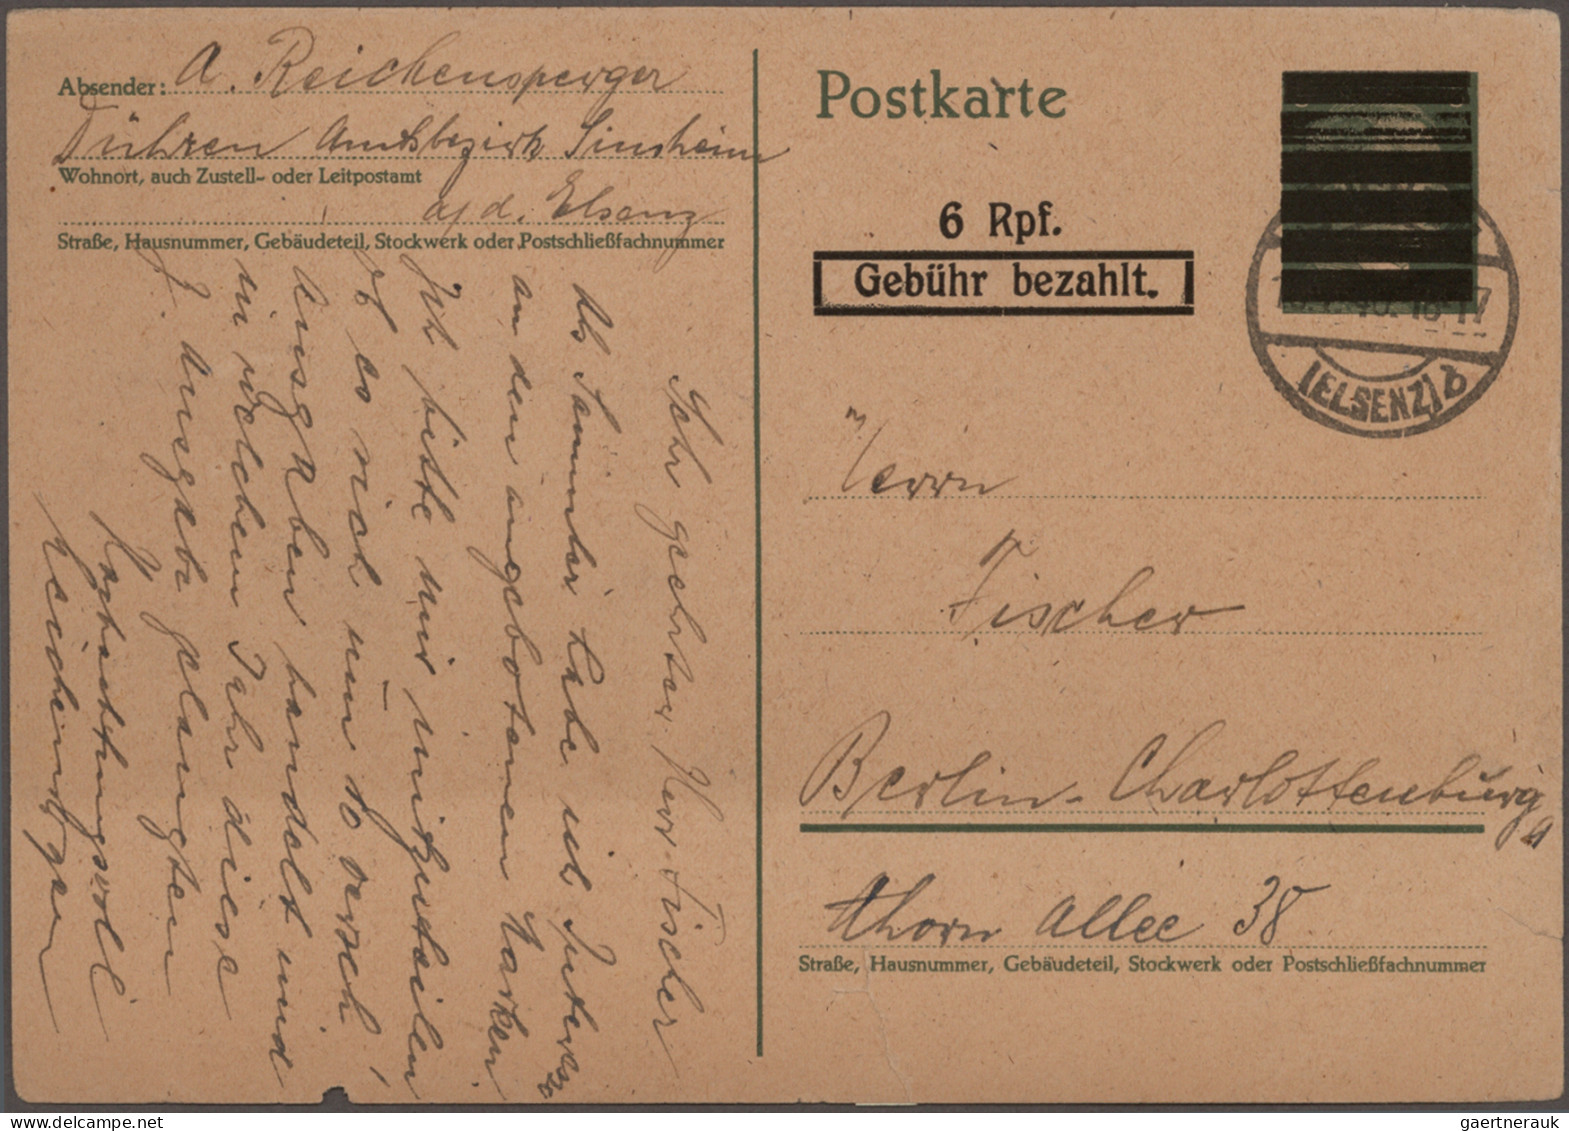 Absender: A. Reichensperger
Dühren Amtsbezirk Sinsheim
Wohnort, auch Zustell- oder Leitpostamt
a/d. Elsenz
Straße, Hausnummer, Gebäudeteil, Stockwerk oder Postschließfachnummer
Sehr geehrter Herr Fischer
Als Sammler habe ich Interesse
an den angebotenen Marken
Ich bitte mir mitzuteilen
ob es sich um
Ausgaben handelt und
in welchem Jahr diese
z. Ausgabe gelangten
Hochachtungsvoll
Postkarte
6 Rpf.
Gebühr bezahlt.
(ELSENZ) b
Herrn
Fischer
Berlin-Charlottenburg 9
Thorn Allee 38
Straße, Hausnummer, Gebäudeteil, Stockwerk oder Postschließfachnummer
gaertnerauk